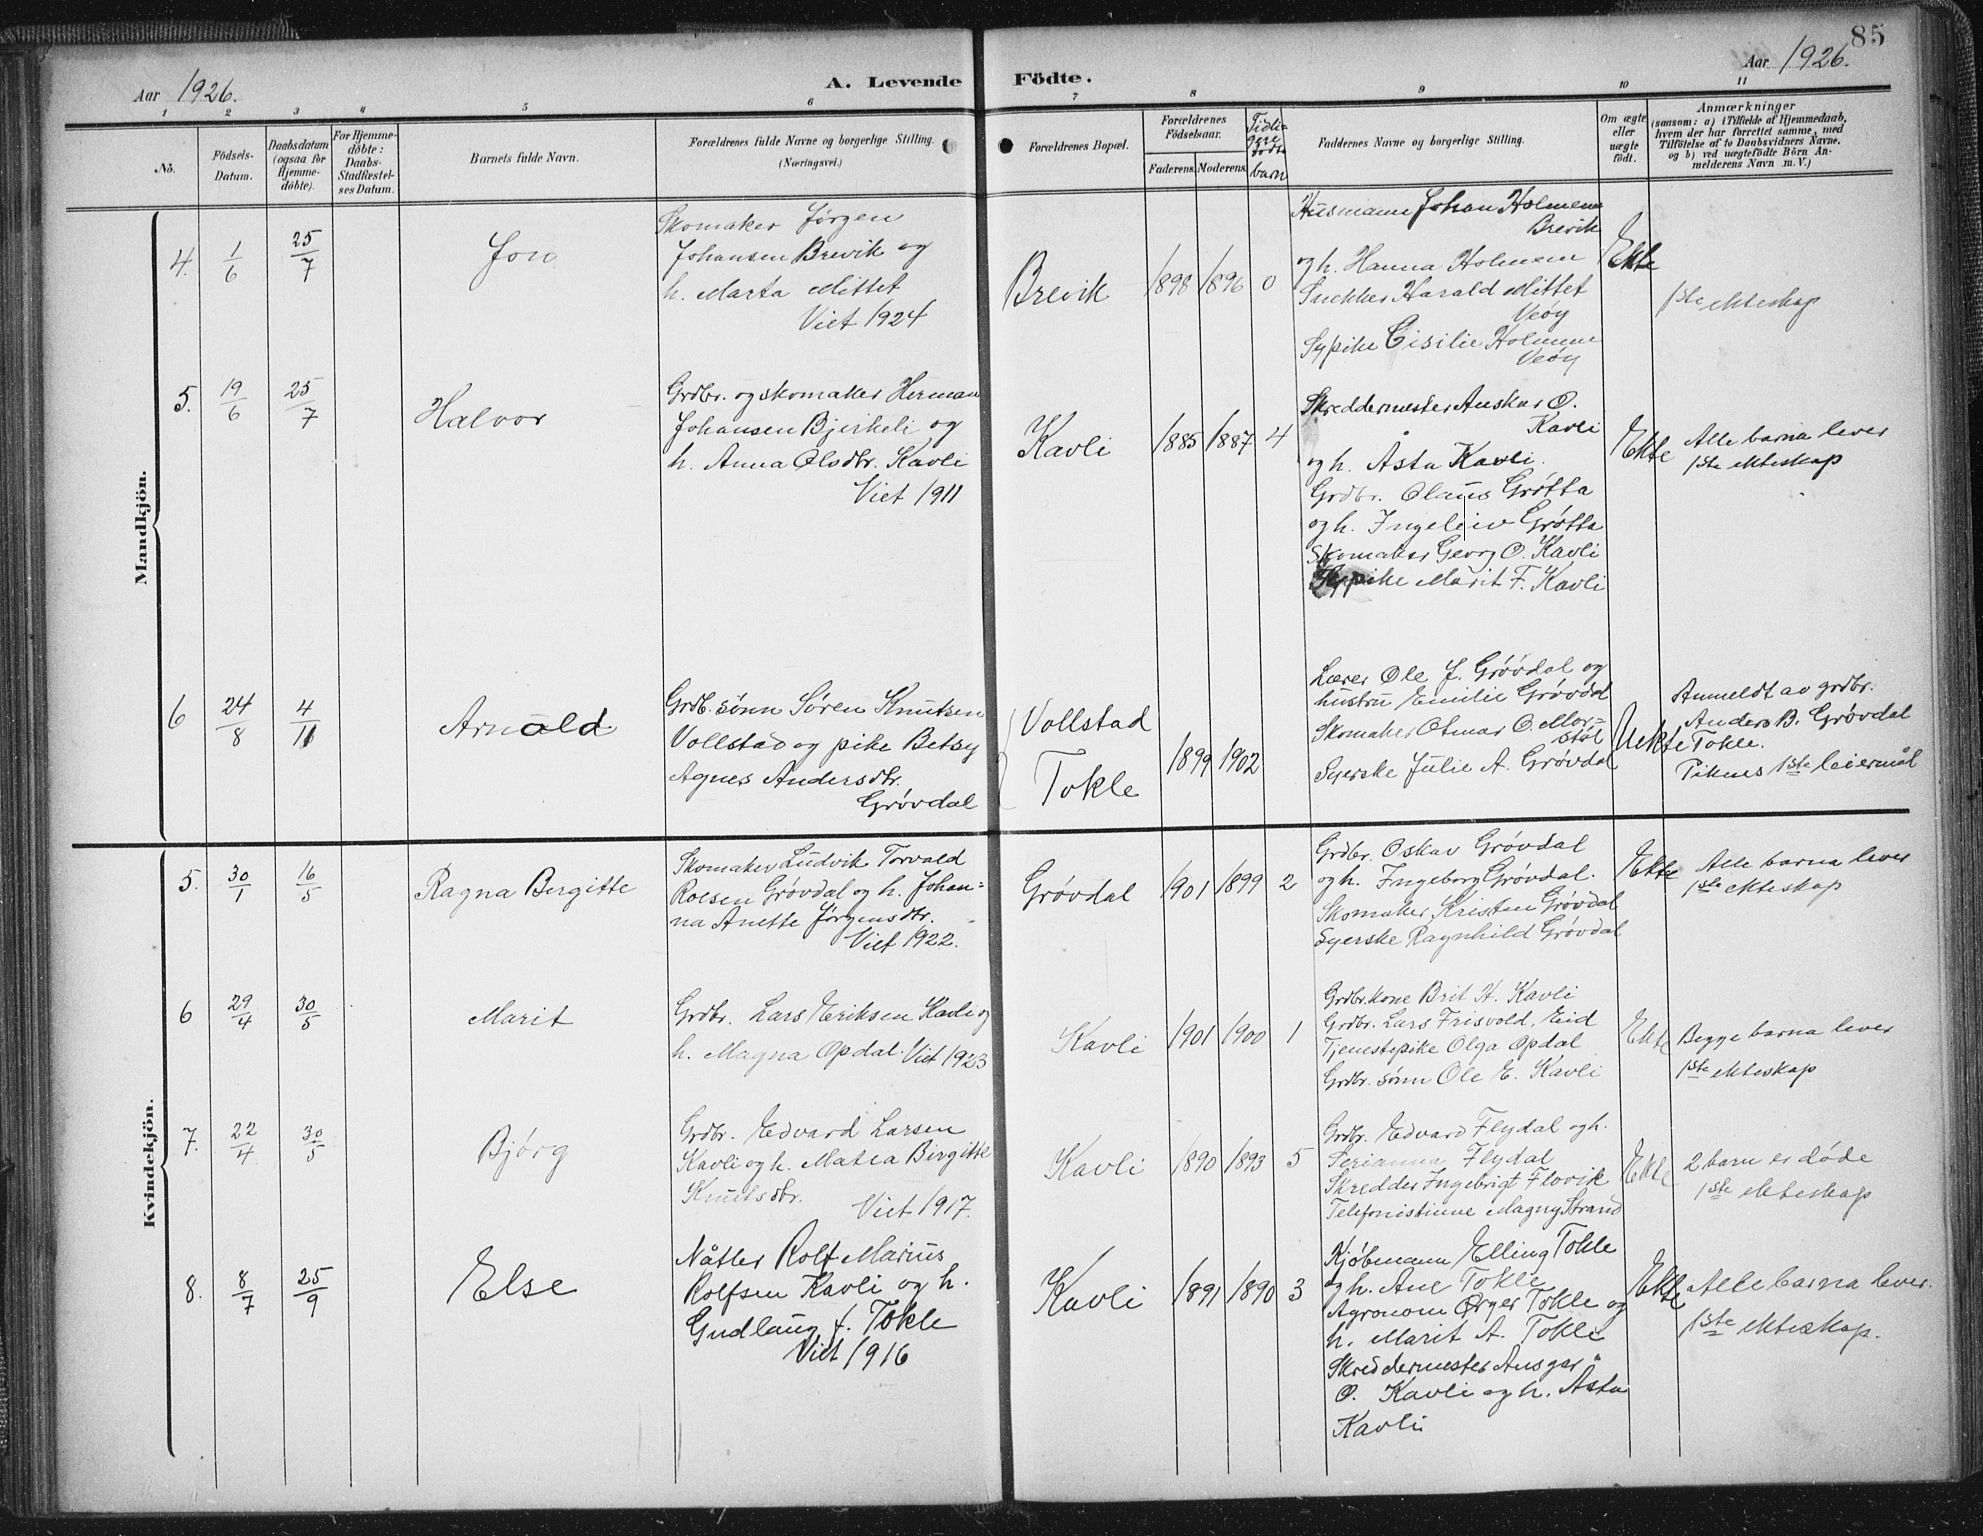 85
Aar 1926.
A. Levende Födte.
Aar 1926.
1 2 3 4 5 6 7 8 9 10 11
No.
Födsels-
Datum.
Daabsdatum
(ogsaa for
Hjemme-
döbte).
For Hjemme-
döbte:
Daabs-
Stadfæstel-
ses Datum.
Barnets fulde Navn.
Forældrenes fulde Navne og borgerlige Stilling.
(Næringsvei.)
Forældrenes Bopæl.
Forældrenes
Födselsaar.
Faderens.
Moderens.
Tidli-
gere
fødte
barn
Faddernes Navne og borgerlige Stilling.
Om ægte
eller
uægte
födt.
Anmærkninger
(saasom: a) i Tilfælde af Hjemmedaab,
hvem der har forrettet samme, med
Tilföielse af to Daabsvidners Navne,
og b) ved uægtefödte Börn An-
melderens Navn m. V.)
Mandkjön.
4. 1/6 25/7
Jon
Skomaker Jørgen
Johansen Brevik og
h. Marta Mittet
Viet 1924
Brevik
1898 1896 0
Husmann Johan Holmem
Brevik
og h. Hanna Holmem
Snekker Harald Mittet
Veøy
Sypike Cisilie Holmem
Veøy
Ekte
1ste ekteskap
5. 19/6 25/7
Halvor
Grdbr. og skomaker Herman
Johansen Bjerkeli og
h. Anna Olsdtr. Kavli
Viet 1911
Kavli
1885 1887 4
Skreddermester Anskar O.
Kavli
og h. Åsta Kavli.
Grdbr. Olaus Grøtta
og h. Ingeleiv Grøtta
Skomaker Georg O. Kavli
Sypike Marit F. Kavli
Ekte
Alle barna lever
1ste ekteskap
6 24/8 4/11
Arnold
Grdb. sønn Søren Knutsen
Vollstad og pike Betsy
Agnes Andersdtr.
Grøvdal
Vollstad
Tokle
1899 1902
Lærer Ole J. Grøvdal og
hustru Emilie Grøvdal
Skomaker Otmar O. Mor-
støl
Syerske Julie A. Grøvdal
Uekte
Anmeldt av grdbr.
Anders B. Grøvdal
Tokle.
Pikens 1ste leiermål
Kvindekjön.
5. 30/1 16/5
Ragna Bergitte
Skomaker Ludvik Torvald
Roesen Grøvdal og h. Johan-
na Anette Jørgensdtr.
Viet 1922.
Grøvdal
1901 1899 2
Grdbr. Oskar Grøvdal
og h. Ingeborg Grøvdal.
Skomaker Kristen Grøvdal
Syerske Ragnhild Grøvdal
Ekte
Alle barna lever
1ste ekteskap
6 29/4 30/5
Marit
Grdbr. Lars Eriksen Kavli og
h. Magna Opdal. Viet 1923
Kavli
1901 1900 1
Grdbr. kone Brit H. Kavli
Grdbr. Lars Frisvold, Eid
Tjenestepike Olga Opdal
Grdbr. sønn Ole E. Kavli
Ekte
Begge barna lever
1ste ekteskap
7. 22/4 30/5
Bjørg
Grdbr. Edvard Larsen
Kavli og h. Matea Birgitte
Knutsdtr.
Viet 1917.
Kavli
1890 1893 5
Grdbr. Edvard Flydal og h.
Serianna Flydal
Skredder Ingebrigt Flovik
Telefonistinne Magny Strand
Ekte
2 barn er døde
1ste ekteskap
8. 8/7 25/9
Else
Nåtler Rolf Marius
Rolfsen Kavli og h.
Gudlaug f. Tokle
Viet 1916
Kavli
1891 1890 3
Kjøbmann Elling Tokle
og h. Ane Tokle
Agronom Ørger Tokle og
h. Marit A. Tokle
Skreddermester Ansgar
O. Kavli og h. Åsta
Kavli
Ekte
Alle barna lever.
1ste ekteskap.